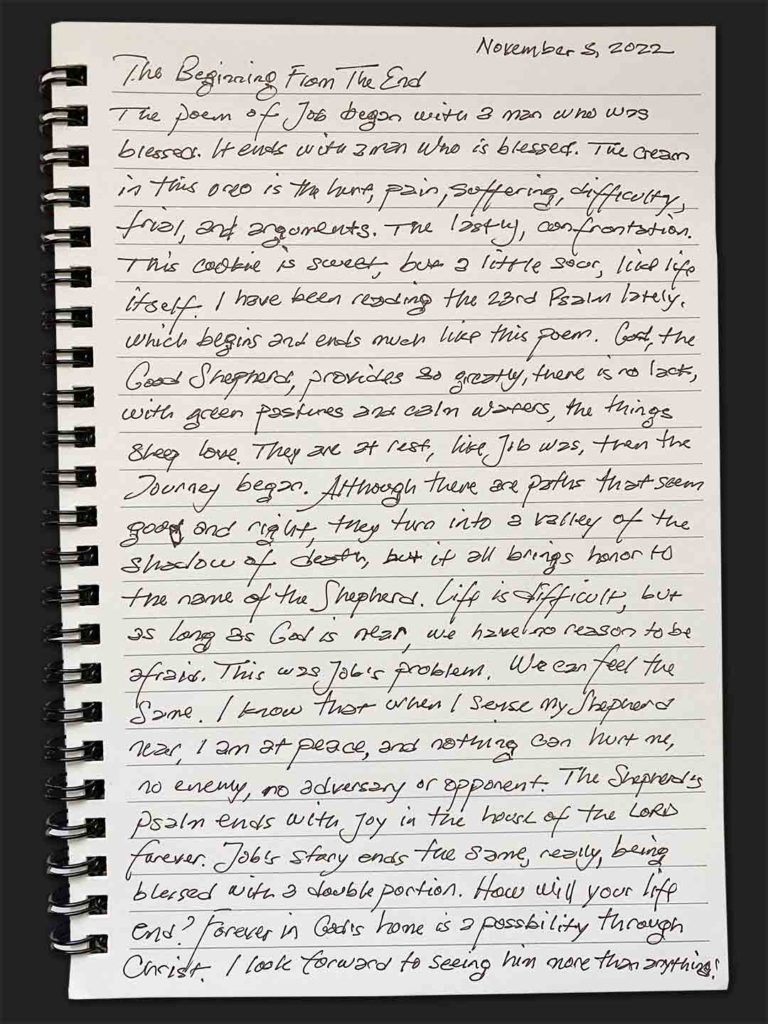 November 3, 2022
The Beginning From The End
The poem of Job began with a man who was
blessed. It ends with a man who is blessed. The cream
in this oreo is the hurt, pain, suffering, difficulty,
trial, and arguments. The lastly, confrontation.
This cookie is sweet, but a little sour, like life
itself. I have been reading the 23rd Psalm lately,
which begins and ends much like this poem. God, the
Good Shepherd, provides so greatly, there is no lack,
with green pastures and calm waters, the things
sheep love. They are at rest, like Job was, then the
Journey began. Although there are paths that seem
good and right, they turn into a valley of the
shadow of death, but it all brings honor to
the name of the Shepherd. Life is difficult, but
as long as God is near, we have no reason to be
afraid. This was Job's problem. We can feel the
same. I know that when I sense my Shepherd
near, I am at peace, and nothing can hurt me,
no enemy, no adversary or opponent. The Shepherd's
Psalm ends with joy in the house of the LORD
forever. Job's story ends the same, really, being
blessed with a double portion. How will your life
end? Forever in God's home is a possbility through
Christ. I look forward to seeing him more than anything!